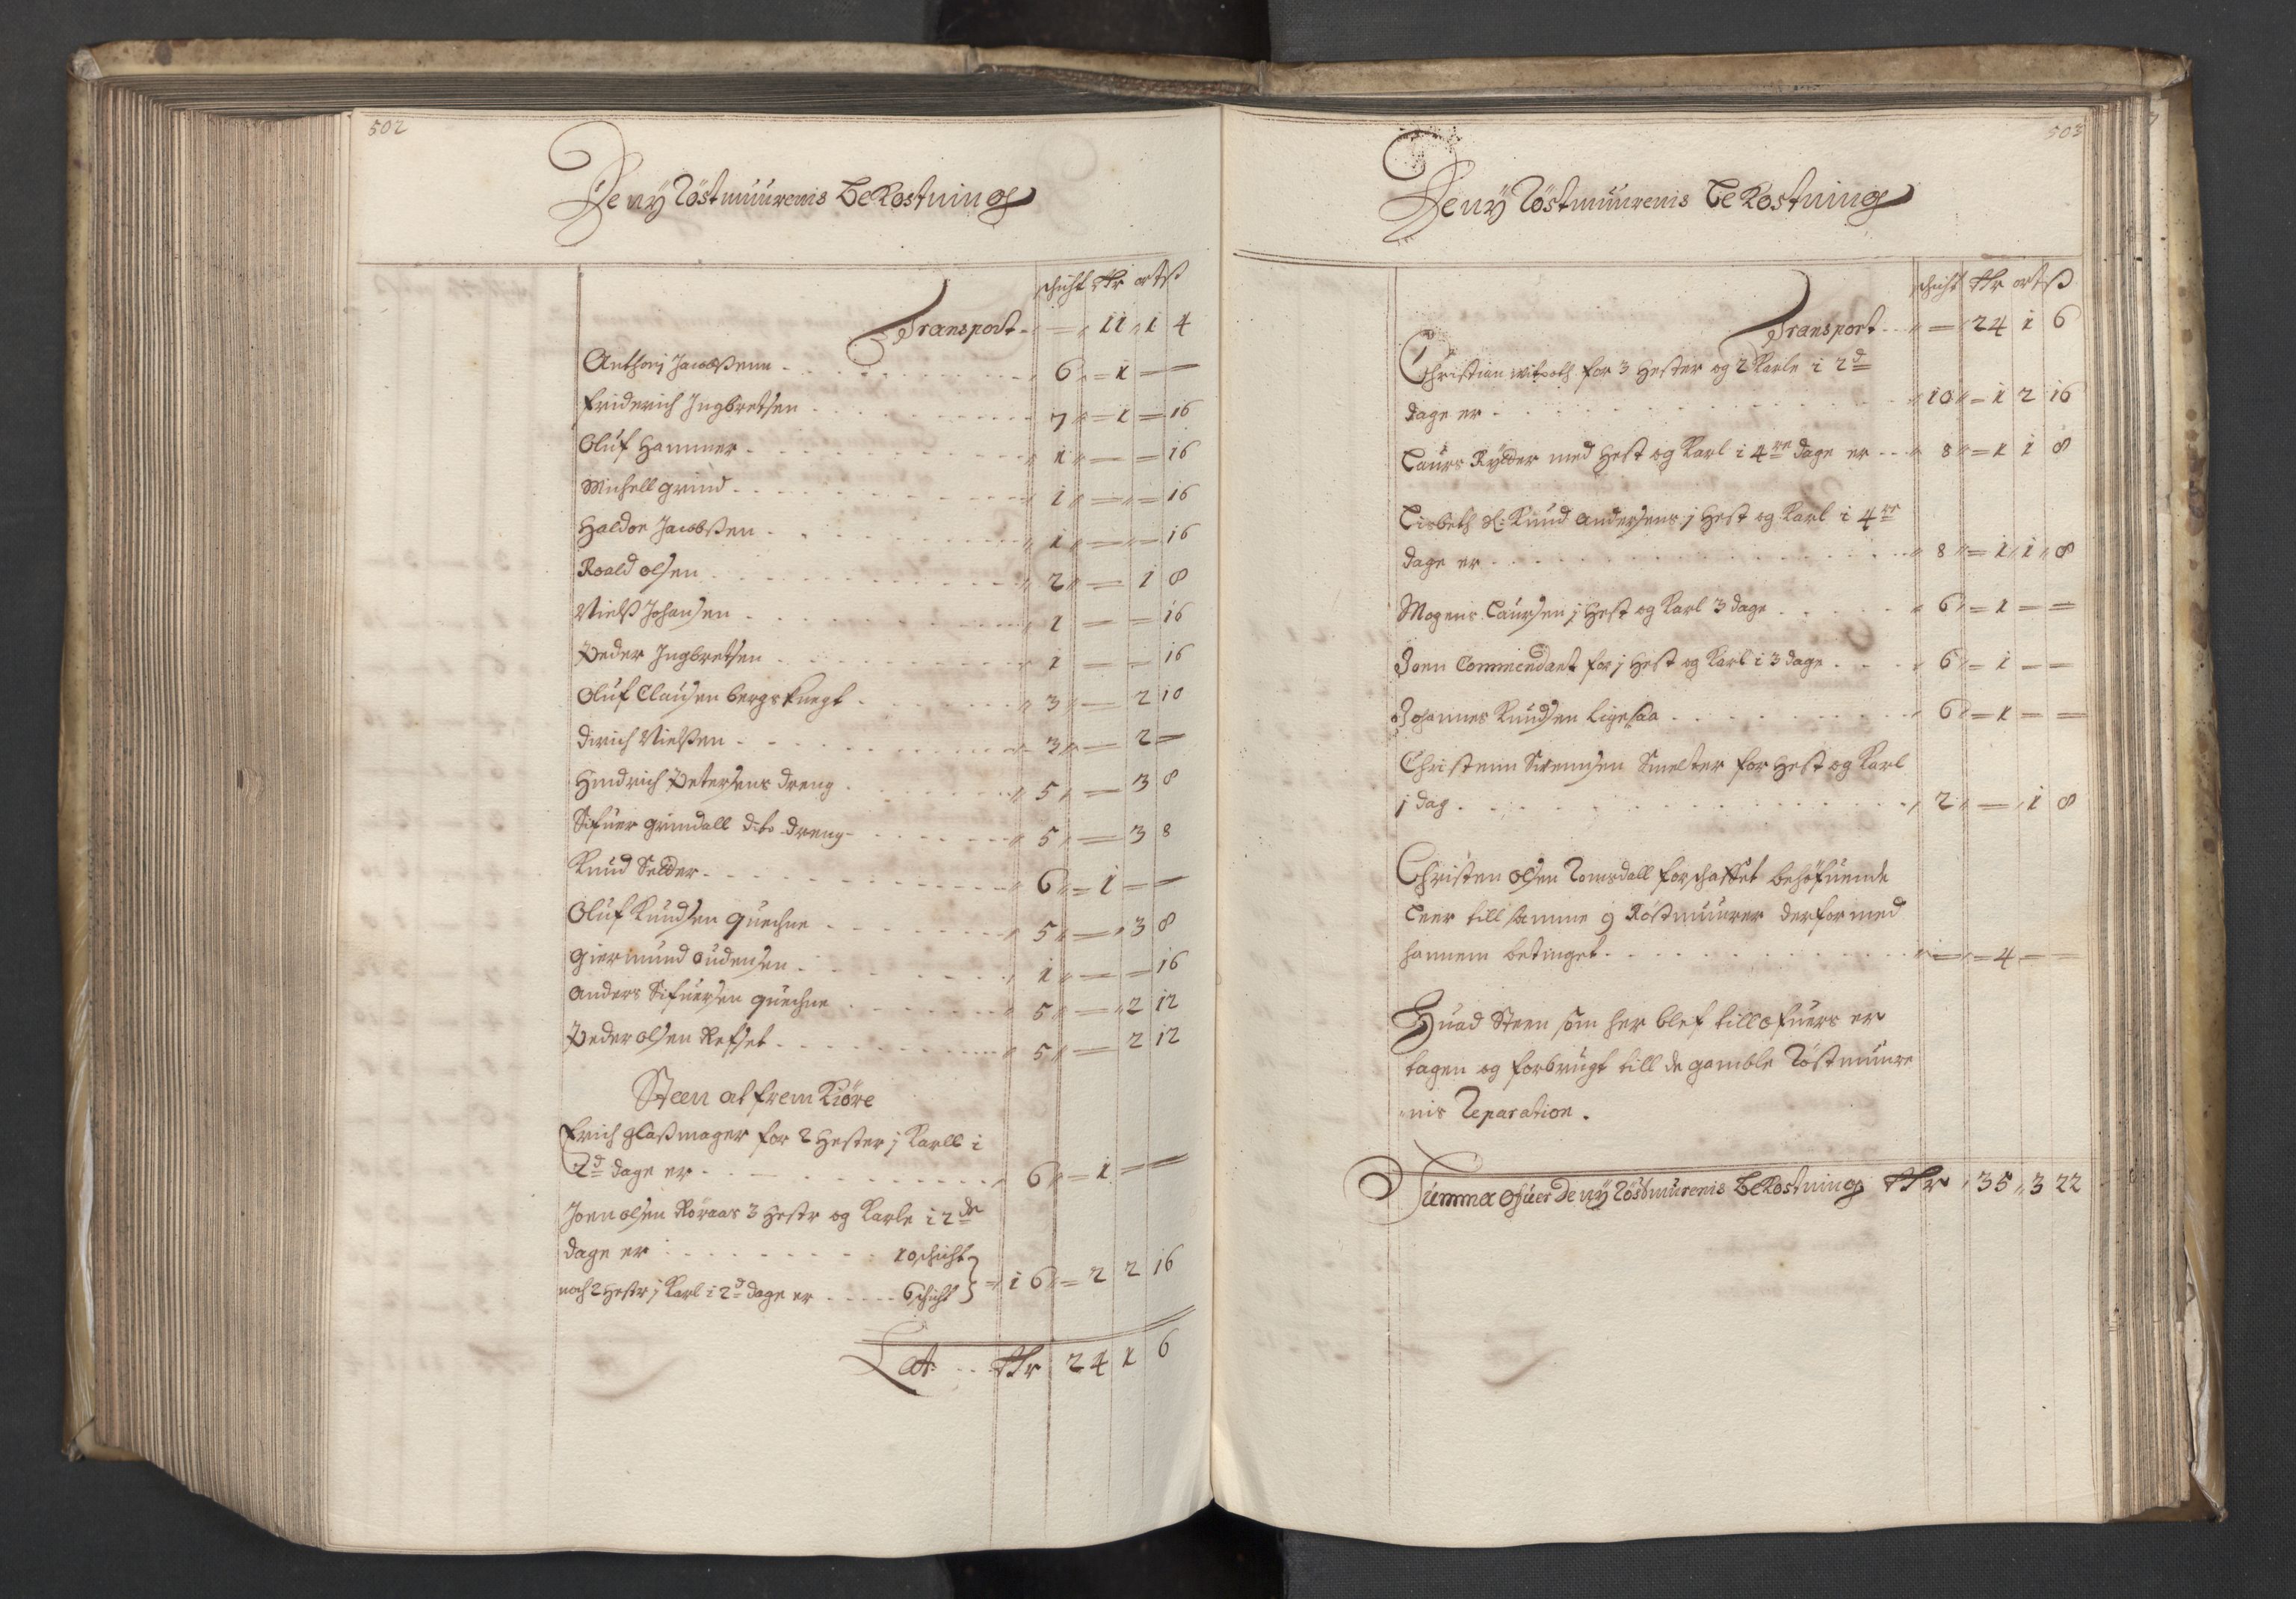 502
De nÿ Röstmuurenis Bekostning
schicht Rr ort ß
Transport - " = " 11 " 1 4
Anthonj Jacobßenn - - - 6 " = 1 —
Friderich Ingbretsen - - - 7 " = 1 = 16
Oluf Hammer - - - " 1 " — = 16
Michell Grind - - - " 1 " = " = 16
Haldor Jacobßen - - - " 1 " = " = 16
Roald Olsen - - - " 2 " = 1 8
Nielß Johansen - - - " 1 — = 16
Peder Ingbretsen - - - 1 — = 16
Oluf Clausen bergs Knegt - - - " 3 " — 2 10
Dirich Nielßen - - - " 3 " = 2 =
Hindrich Petersens dreng - - - " 5 " = 3 8
Sifuer Grindall dito dreng - - - " 5 " = 3 8
Knud Selder - - - " 6 " = 1 — —
Oluf Knudsen Quechne - - - " 5 " = " 3 8
Giermund Oudensen - - - " 1 " = = 16
Anders Sifuersen Quechne - - - " 5 " = " 2 12
Peder Olsen Refset - - - " 5 " = 2 12
Steen at frem Kiöre
Erich Glaßmager for 2 Hester j Karll i
2d dage er - - - " 6 " = 1 = =
Joen Olsen Röraas 3 Hestr og Karle i 2de
dage er - - - 10 schicht
noch 2 Hestr j Karl i 2d dage er - - - 6 schicht } = 16 " = 2 2 16
Lat - - Rr 24 1 6
503
De nÿ Röstmuurenis Bekostning
schicht Rr ort ß
Transport - - " = " 24 1 6
Christian witroth for 3 Hester og 2 Karle i 2d
dage er - - - " 10 " = 1 2 16
Laurs Rÿdder med Hest og Karl i 4re dage er - - " 8 " = 1 1 8
Lisbeth Sl: Knud Andersens j Hest og Karl i 4re
dage er - - - " 8 " = 1 " 1 " 8
Mogens Laursen j Hest og Karl 3 dage - - - " 6 " = 1 = =
Joen Commendant for j Hest og Karl i 3 dage - - - " 6 " = 1 — —
Johannes Knudsen ligesaa - - - " 6 " = 1 — =
Christenn Svensen Smelter for Hest og Karl
j dag - - - " 2 " = " 1 8
Christen Olsen Romsdall forschaffet behöfuende
Leer till samme 9 Röstmuurer derfor med
hannem betinget - - - " = " = 4 — —
Huad Steen som her blef till ofuers er
tagen og forbrugt till de gamble Röstmuure
nis Reparation.
Summa Ofuer De nÿ Röstmurenis Bekostning Rr " 35 " 3 22